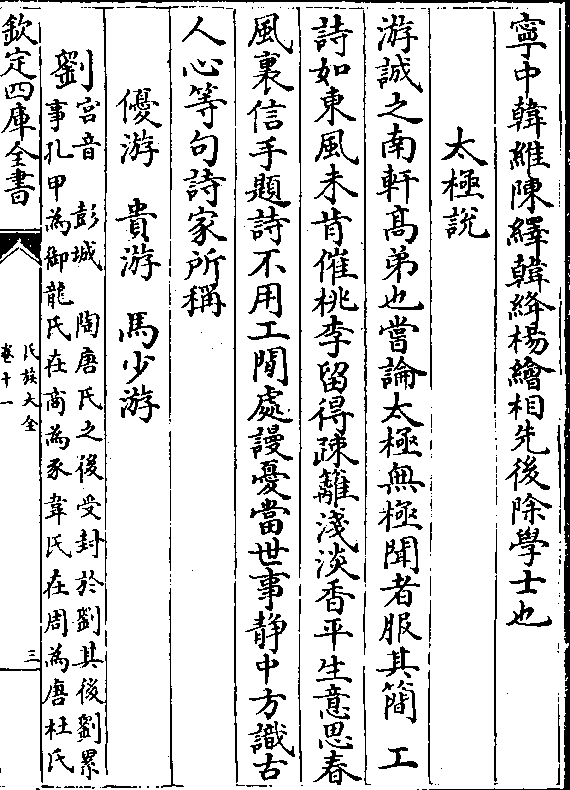 寧中韓維陳繹韓絳楊繪相先後除學士也
太極說
游誠之南軒高弟也嘗論太極無極聞者服其簡 工
詩如東風未肯催桃李留得疎籬淺淡香平生意思春
風裏信手題詩不用工閒處謾憂當世事靜中方識古
人心等句詩家所稱
優游 貴游 馬少游
劉 宫音 彭城 陶唐氏之後受封於劉其後劉累
事孔甲為御龍氏在商為豕韋氏在周為唐杜氏
欽定四庫全書
氏族大全
卷十一
三